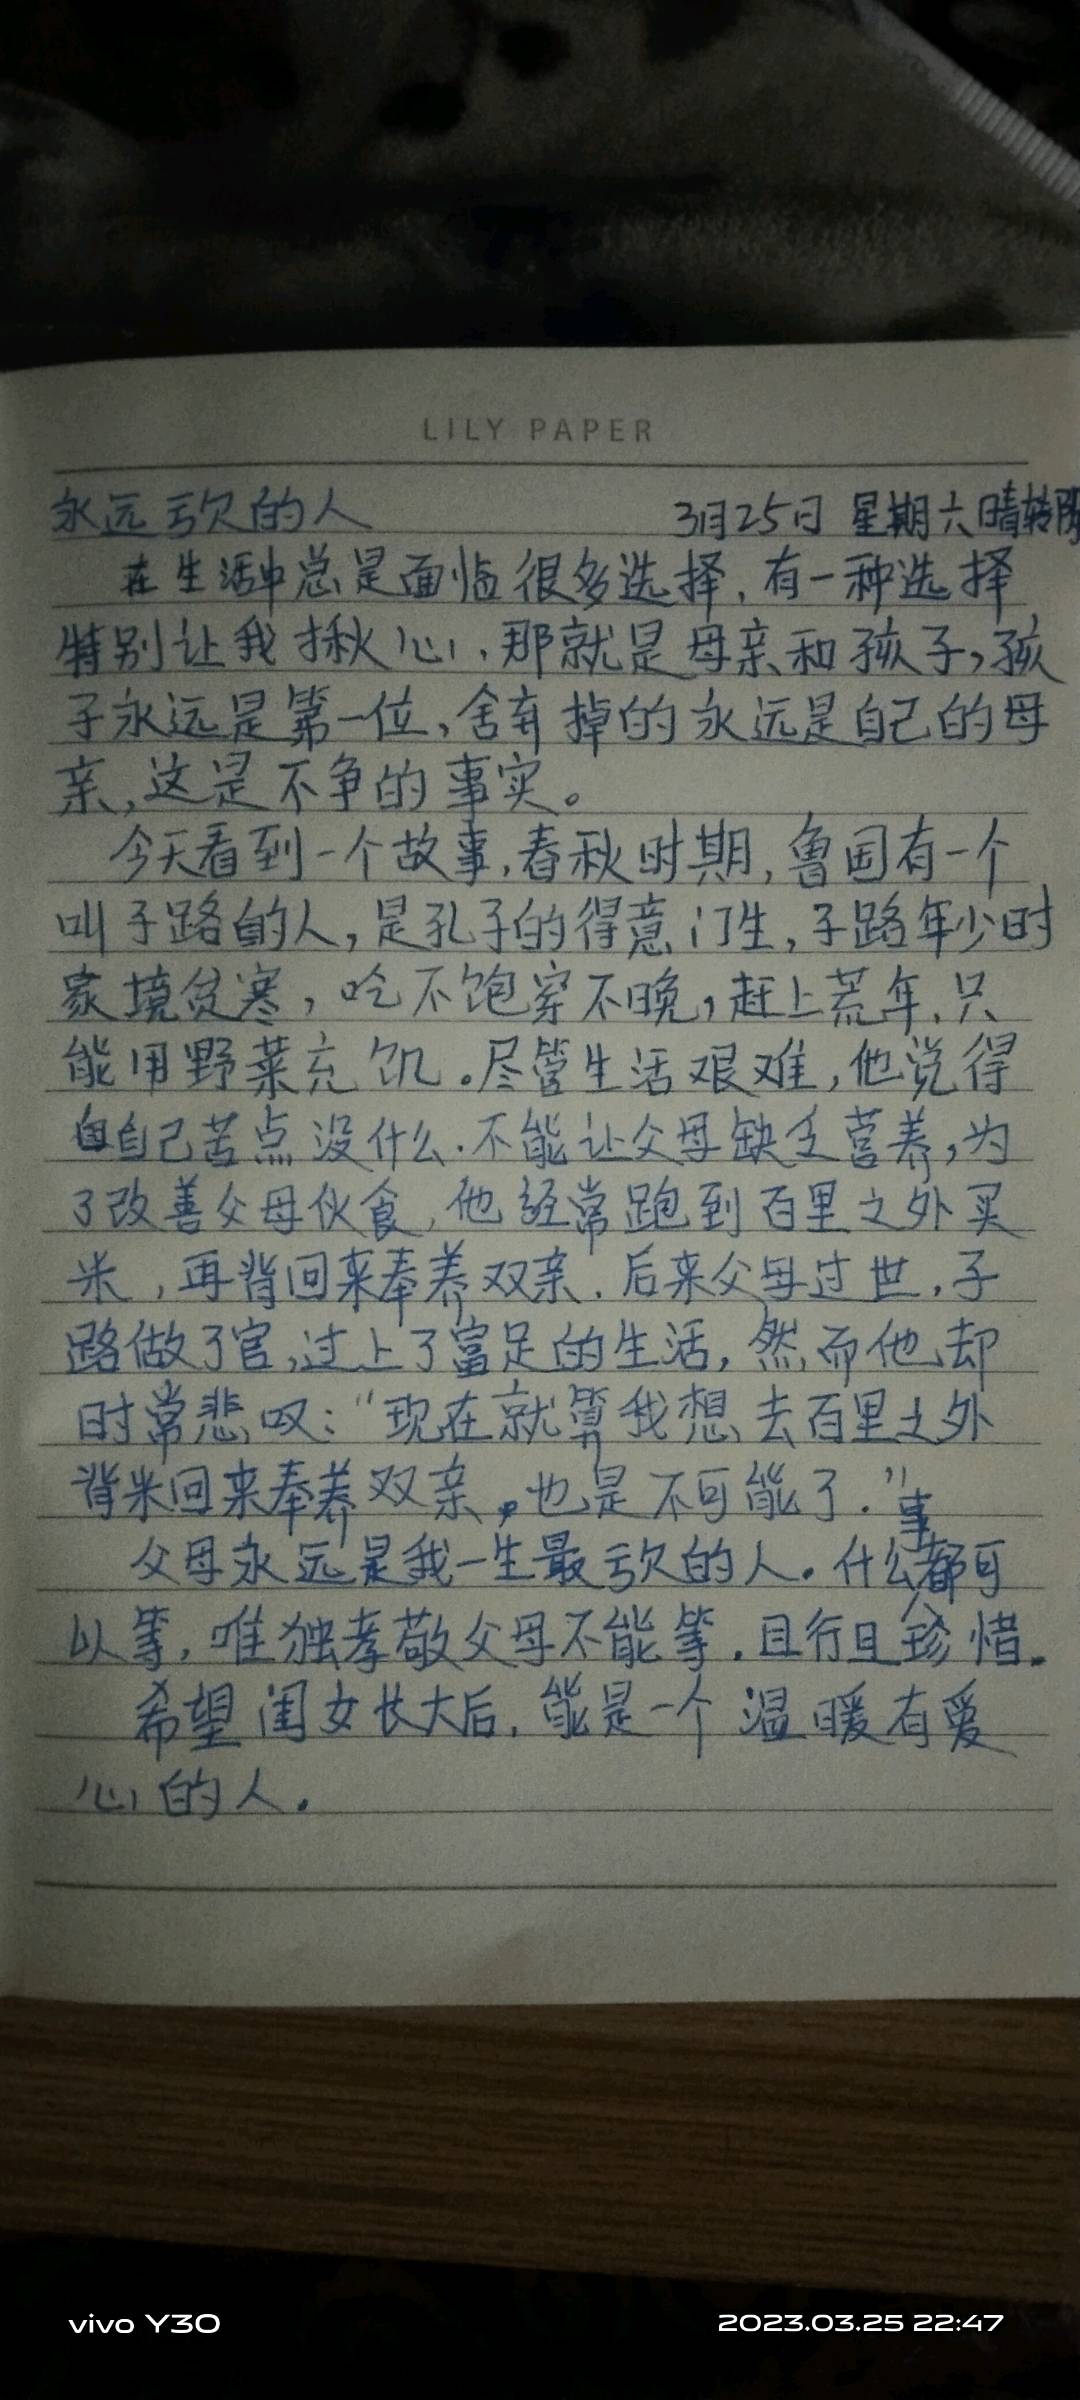 LILY PAPER
永远亏欠的人 3月25日 星期六 晴转阴
在生活中总是面临很多选择,有一种选择
特别让我揪心,那就是母亲和孩子,孩
子永远是第一位,舍弃掉的永远是自己的母
亲,这是不争的事实。
今天看到一个故事,春秋时期,鲁国有一个
叫子路的人,是孔子的得意门生,子路年少时
家境贫寒,吃不饱穿不晚,赶上荒年,只
能用野菜充饥。尽管生活艰难,他说得
自己苦点没什么.不能让父母缺乏营养,为
了改善父母伙食,他经常跑到百里之外买
米,再背回来奉养双亲.后来父母过世,子
路做了官,过上了富足的生活,然而他却
时常悲叹:“现在就算我想去百里之外
背米回来奉养双亲,也是不可能了.”
父母永远是我一生最亏欠的人.什么事都可
以等,唯独孝敬父母不能等.且行且珍惜.
希望闺女长大后,能是一个温暖有爱
心的人.
vivo Y30 2023.03.25 22:47